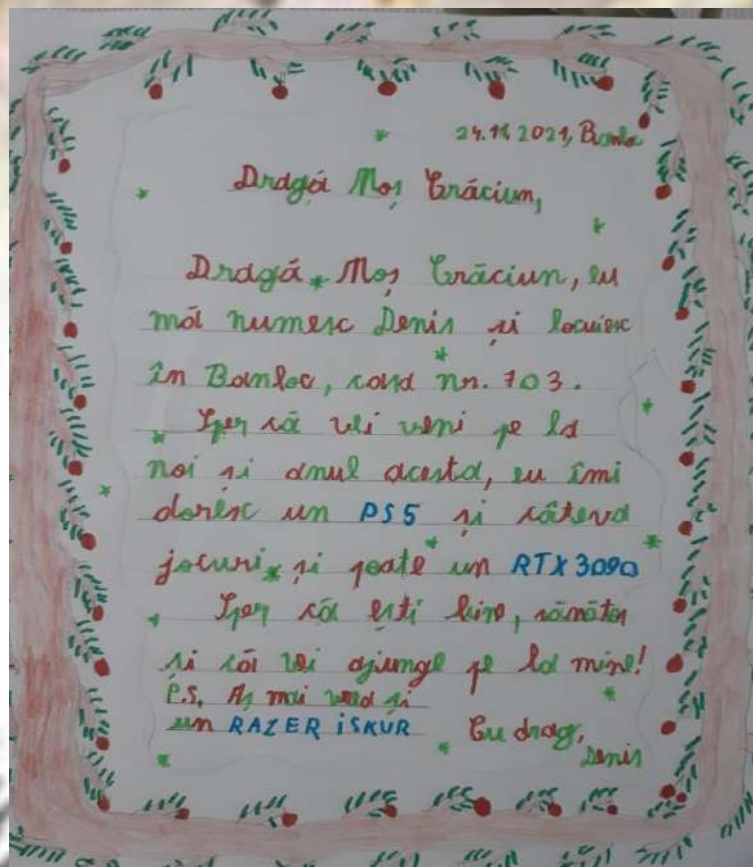 24.11.2021, Banloc
Dragă Moș Crăciun,
Dragă Moș Crăciun, eu
mă numesc Denis și locuiesc
în Banloc, casa nr. 703.
Sper că vei veni pe la
noi si anul acesta, eu îmi
doresc un PS5 și câteva
jocuri și poate un RTX 3090
Sper că ești bine, sănătos
și că vei ajunge pe la mine!
P.S. Aș mai vrea și
un RAZER iSKUR
Cu drag,
Denis